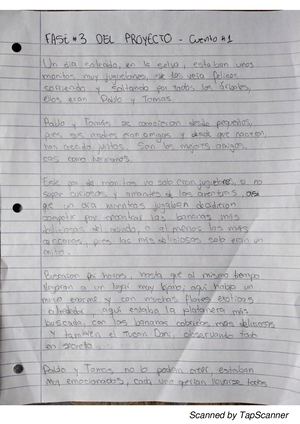 FASE #3 DEL PROYECTO - Cuento #1
Un día soleado, en la selva, estaban unos
monitos muy juguetones, se les veía felices
corriendo y saltando por todos los árboles,
ellos eran Pablo y Tomás.
Pablo y Tomás se conocieron desde pequeños,
pues sus madres eran amigas y desde que nacieron
han crecido juntos. Son los mejores amigos,
casi como hermanos.
Este par de monitos no solo eran juguetones, si no
súper curiosos y amantes de las aventuras, así
que un día mientras jugaban decidieron
competir por encontrar las bananas más
deliciosas del mundo, o al menos las más
cercanas, pues las más deliciosas solo eran un
Buscaron por horas, hasta que al mismo tiempo
llegaron a un lugar muy lejano, aquí había un
enorme y con muchas flores exóticas
alrededor, aquí estaba la platanera más
buscada, con las bananas colgantes más deliciosas
y también el Tucán Dani, observando todo
en secreto
Pablo y Tomás no lo podían creer, estaban
muy emocionados, cada uno quería llevarse todos
Scanned by TapScanner